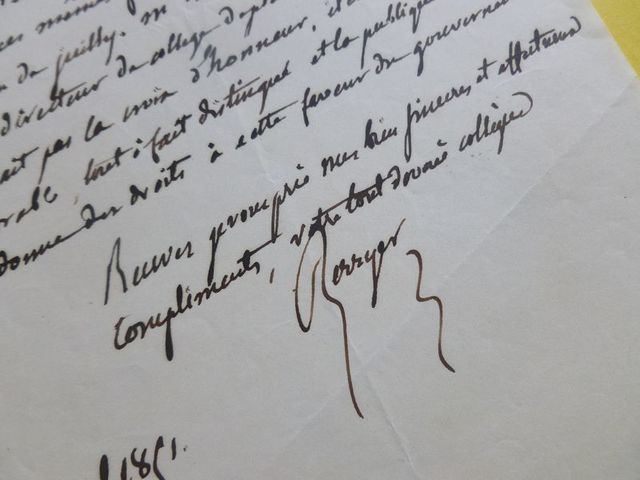 de juilly. M
directeur du collège
ait pas la croix d'honneur, et
rable, tout à fait distingué et la publique
donne des droits à cette faveur du gouverne
Recevez je vous prie mes bien sinceres et affectueux
compliments, votre tout devoué collègue
Berryer
1851.